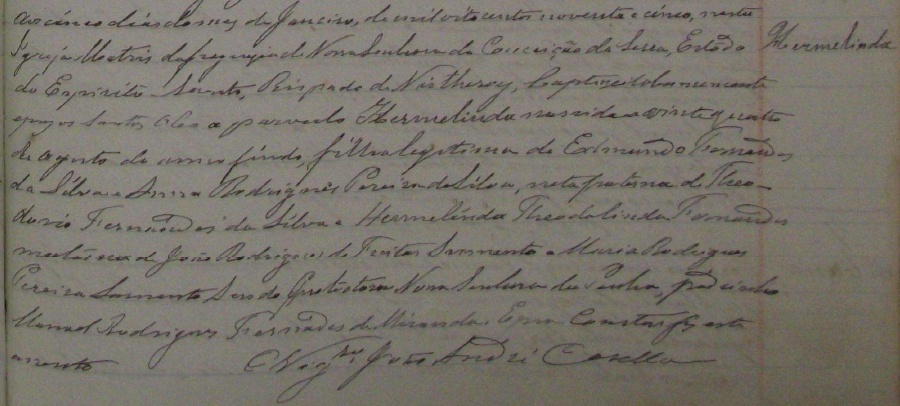 Aos cinco dias do mes de Janeiro, de mil oito centos noventa e cinco, nesta
Igreja Matris da freguezia de Nossa Senhora da Conceição da Serra, Estado
do Espirito Santo, Bispado de Nictheroy, baptizei solemnemente
e puz os Santos Oleos a parvula Hermelinda nascida a vinte quatro
de agosto do anno findo, filha legitima de Edmundo Fernandes
da Silva e Anna Rodrigues Pereira da Silva, neta paterna de Theo-
dorio Fernandes da Silva e Hermelinda Theodolinda Fernandes
materna de João Rodrigues de Freitas Sarmento e Maria Rodrigues
Pereira Sarmento Sendo Protectora Nossa Senhora da Penha, padrinho
Manoel Rodrigues Fernandes de Miranda. E pra Constar fiz este
assento
O Vigrº João André Casella
Hermelinda